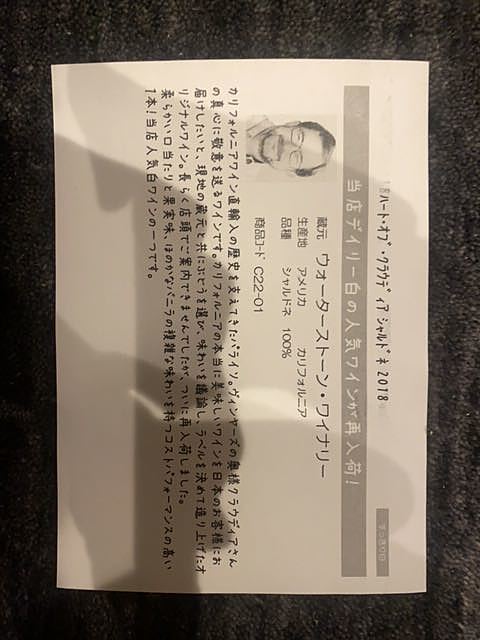 ハート・オブ・クラウディア シャルドネ 2018
すっきり白
当店デイリー白の人気ワインが再入荷!
蔵元 ウォーターストーン・ワイナリー
生産地 アメリカ カリフォルニア
品種 シャルドネ 100%
商品コード C22-01
カリフォルニアワイン直輸入の歴史を支えてきたパライソ。ヴィンヤーズの奥様クラウディアさん
の真心に敬意を送るワインです。カリフォルニアの本当に美味しいワインを日本のお客様にお
届けしたいと、現地の蔵元と共にぶどうを選び、味わいを議論し、ラベルを決めて造り上げたオ
リジナルワイン。長らく店頭でご案内できませんでしたが、ついに再入荷しました。
柔らかい口当たりと果実味、ほのかなバニラの複雑な味わいを持つコストパフォーマンスの高い
1本!当店人気白ワインの一つです。